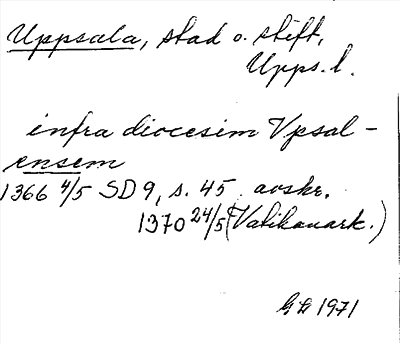 Uppsala, stad o. stift,
Upps. l.
infra diocesim Vpsal-
ensem
1366 4/5 SD 9, s. 45 avskr.
1370 24/5 (Vatikanark.)
1971